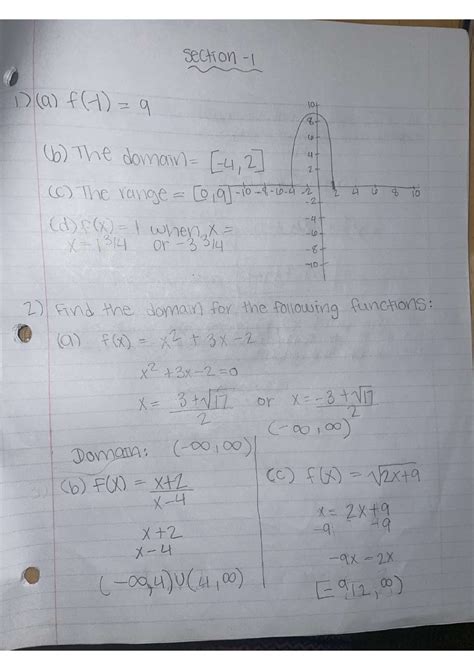 Section -1
1) (a) f(-1) = 9
(b) The domain = [-4, 2]
(c) The range = [0, 9]
(d) f(x) = 1 when x =
x = 1 3/4 or -3 3/4
10
8
6
4
2
-10 -8 -6 -4 -2 2 4 6 8 10
-2
-4
-6
-8
-10
2) Find the domain for the following functions:
(a) f(x) = x² + 3x - 2
x² + 3x - 2 = 0
x = 3 + √17 / 2 or x = -3 + √17 / 2
(-∞, ∞)
Domain: (-∞, ∞)
(b) f(x) = x+2 / x-4
x+2
x-4
(-∞, 4) U (4, ∞)
(c) f(x) = √2x+9
x = 2x+9
-9 -9
-9x - 2x
[-9/2, ∞)